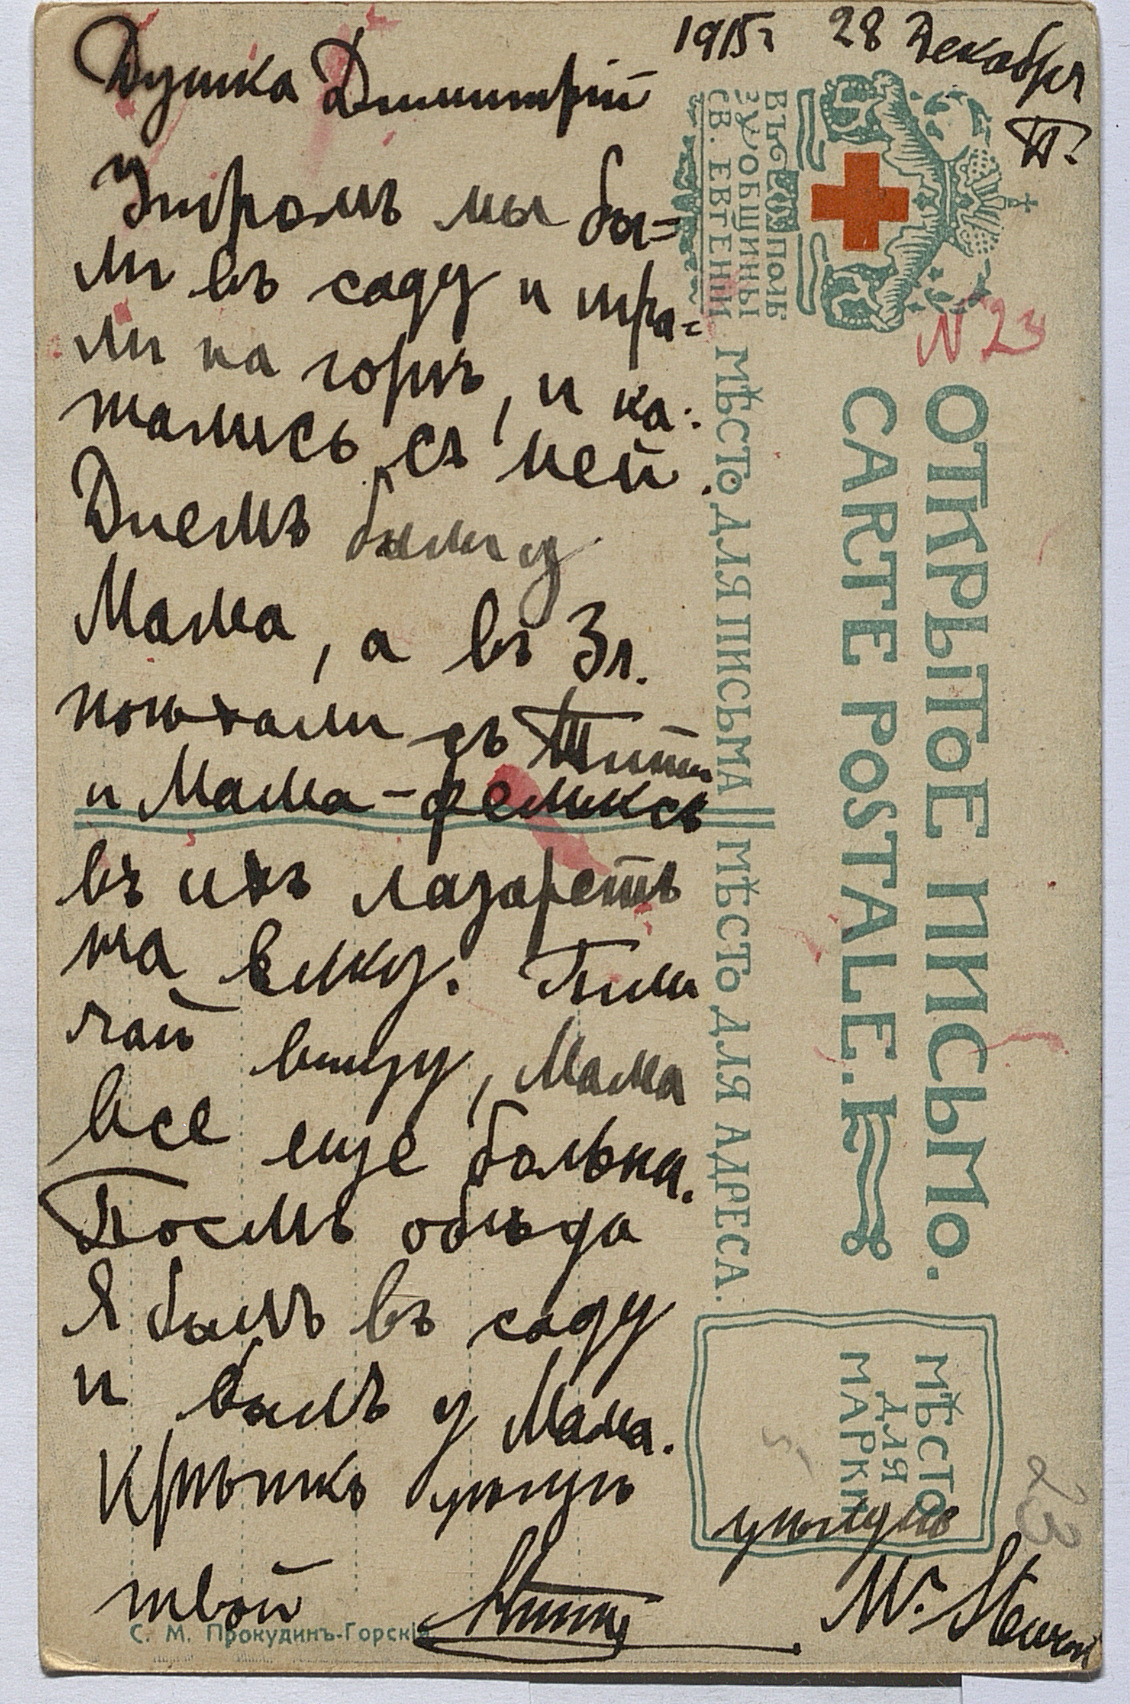 1915г 28 Декабря
П.
Душка Димитрій
Утромъ мы бы=
ли въ саду и игра=
ли на горкѣ, и ка=
тались съ ней.
Днемъ были у
Мама, а въ 3 ч.
поѣхали съ
и Мама-феликсъ
въ ихъ лазаретъ
на елку.
ввиду, Мама
все еще больна.
Послѣ обѣда
Я былъ въ саду
и былъ у Мама.
Крѣпко цѣлую
твой
цѣлую
Mr.
N 23
23
ВЪ ПОЛЬЗУ ОБЩИНЫ
СВ. ЕВГЕНІИ
ОТКРЫТОЕ ПИСЬМО.
CARTE POSTALE.
МѢСТО ДЛЯ ПИСЬМА
МѢСТО ДЛЯ АДРЕСА.
МѢСТО
ДЛЯ
МАРКИ
С. М. Прокудинъ-Горскій